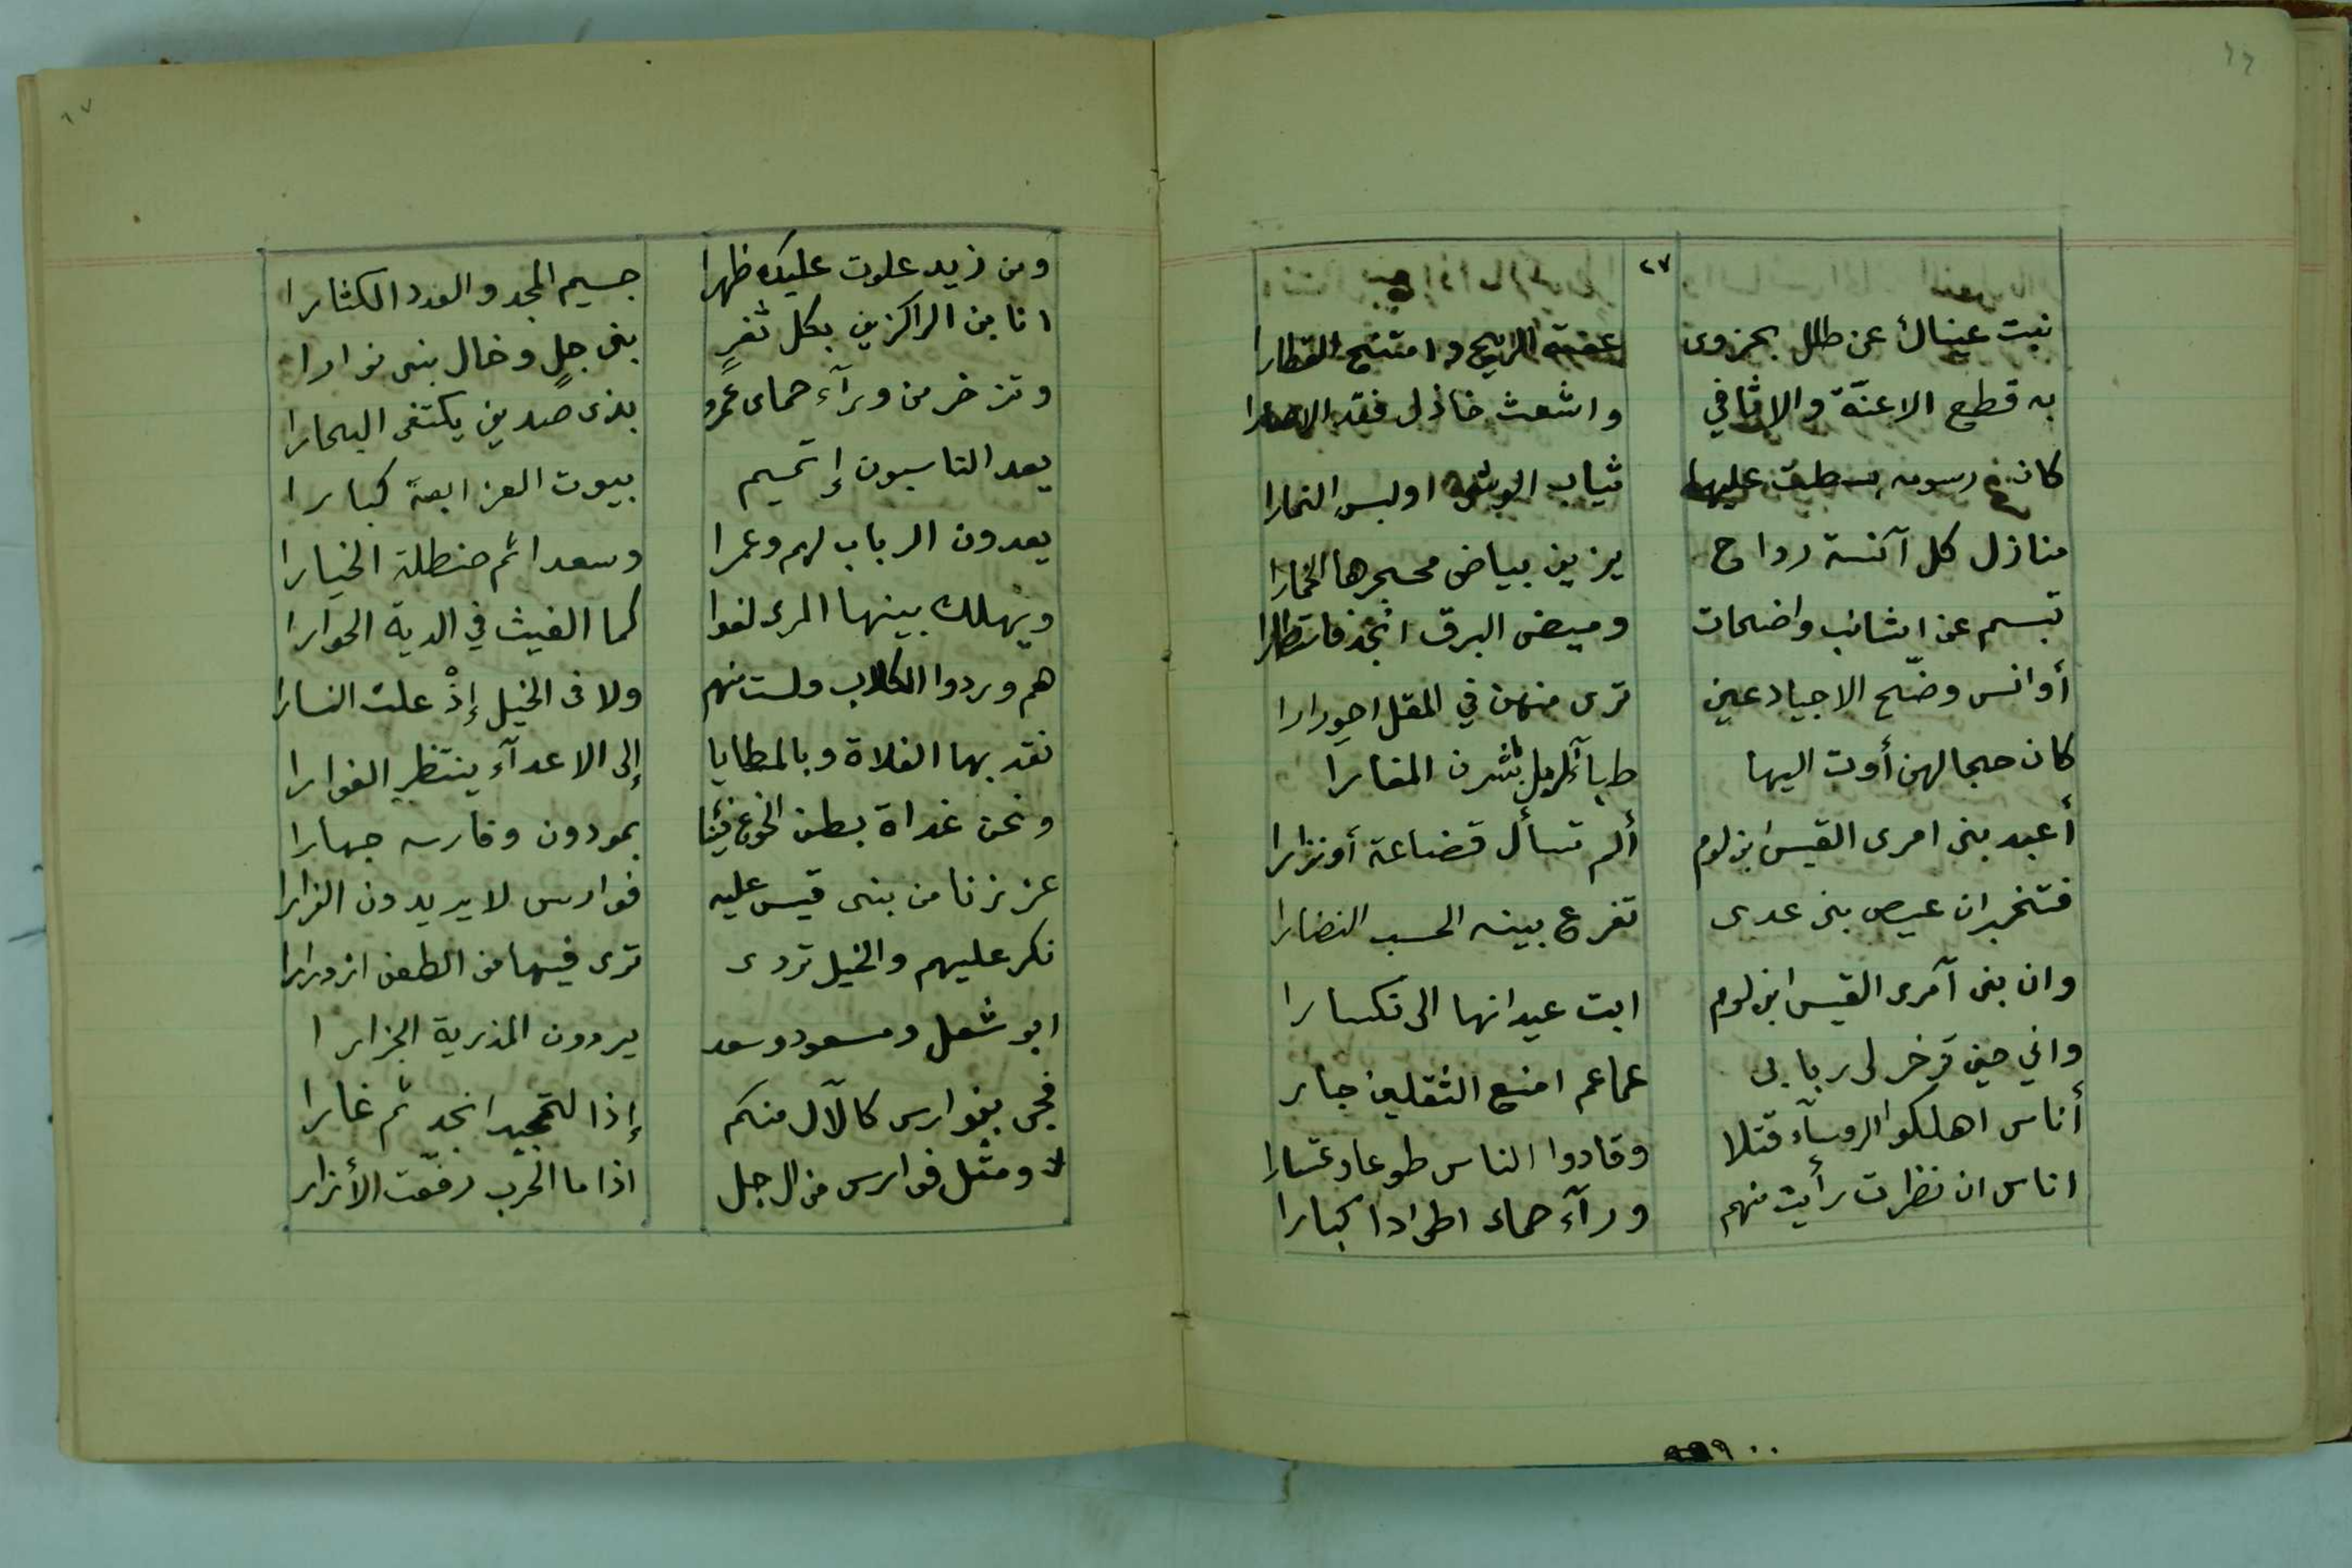 ٦٦
٢٧
نبت عيناك عن طلل بحزوى عفته الريح وامتنح القطارا
به قطع الاعنّة والاثافي واشعث خاذل فقد الاصارا
كان رسومه بسطت عليها ثياب الوشى اولبس النمارا
منازل كل آنسة رداح يزين بياض محجرها الخمارا
تبسم عن اشانب واضحات وميض البرق انجد فاستطارا
أوانس وضّح الاجياد عين ترى منهن في المقل احورارا
كان حجالهن أوت اليها ظبآء الرمل باشرن المغارا
أعبد بنى امرى القيس ابن لوم ألم تسأل قضاعة أونزارا
فتخبر ان عيص بنى عدى تفرع بيته الحسب النضارا
وان بنى آمرى القيس ابن لوم ابت عيدانها الى نكسارا
واني حين تزخر لى ربابى عماعم امنع الثقلين جار
أناس اهلكوا الروسآء قتلا وقادوا الناس طوعا وعتسارا
اناس ان نظرت رأيت منهم ورآء حماء اطوادا كبارا
٦٧
ومن زيد علوت عليك ظهرا جسيم المجد والعدد الكثارا
انا بن الراكزين بكل ثغرٍ بنى جلٍ وخال بنى نوارا
وتزخر من ورآء حماى عمرو بذى صدين يكتفى البحارا
يعد الناسبون إ تميم بيوت العز ابعة كبارا
يعدون الرباب لهم وعمرا وسعدا ثم حنظلة الخيارا
ويهلك بينها المرى لغوا كما الغيث في الدية الحوارا
هم وردوا الكلاب ولست منهم ولا فى الخيل إذْ علت النسارا
نقد بها الفلاة وبالمطايا إلى الاعدآء ينتظر الغوارا
ونحن غداة بطن الخوع فئنا بمودون وفارسه جهارا
عززنا من بنى قيس عليه فوارس لا يريدون الفرارا
نكر عليهم والخيل تردى ترى فيها من الطعن ازورارا
ابو شعل ومسعود وسعد يردون المذرية الجزارا
فجى بفوارس كالآل منكم إذا التجير انجد ثم غارا
ومثل فوارس من ال جل اذا ما الحرب رفعت الأزار
٩٩٩٠٠